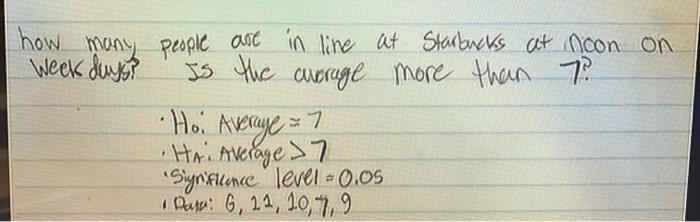 how many people are in line at Starbucks at noon on
Week days? Is the average more than 7?
· Ho: Average = 7
· HA: Average > 7
· Significance level = 0.05
· Data: 6, 11, 10, 7, 9